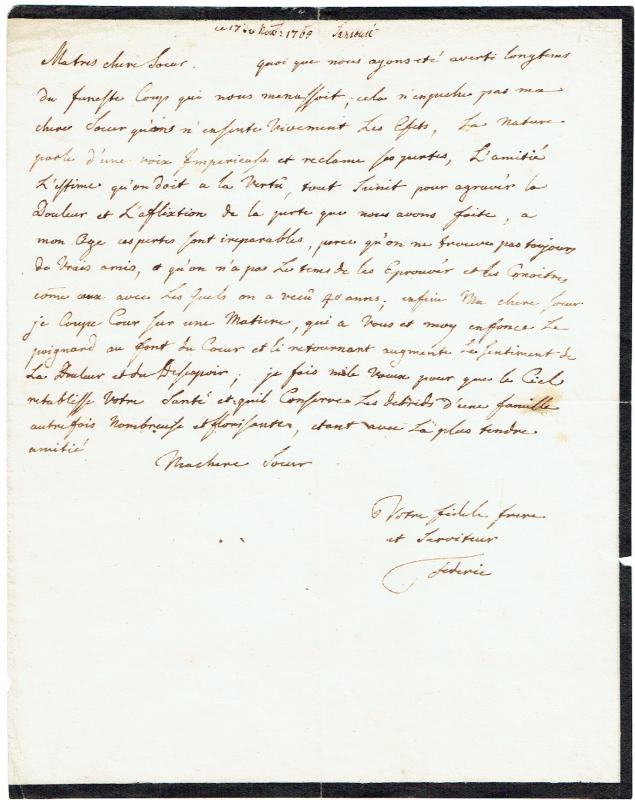 ce 17 1768
Ma tres chere Soeur. quoi que nous ayons été averti longtems
du funeste Coup qui nous menassoit, cela n'enpeche pas ma
chere Soeur qu'on n'en sente Vivement Les Efets, La Nature
parle d'une voix Imperieuse et reclame ses pertes, L'amitié
L'estime qu'on doit a la Vertû, tout S'unit pour agraver la
Douleur et L'aflixtion de la perte que nous avons faite, a
mon Age ces pertes sont ireparables, parce qu'on ne trouve pas toujours
de Vrais amis, et qu'on n'a pas Le tems de les Eprouvér et les Conoitre
come ceux avec Les quels on a vecû 40 anns; enfin Ma chere soeur
je Coupe Cour sur une Matiere, qui a Vous et moy enfonce Le
poignard au font du Coeur et le retournant augmente Le sentiment de
La Douleur et du Desespoir; je fais mile Voeux pour que le Ciel
retablisse Votre Santé et quil Conserve Les debrids d'une famille
autre fois Nombreuse et florisante, etant avec La plus tendre
amitié
Ma chere Soeur
Votre fidele frere
et Serviteur
Federic